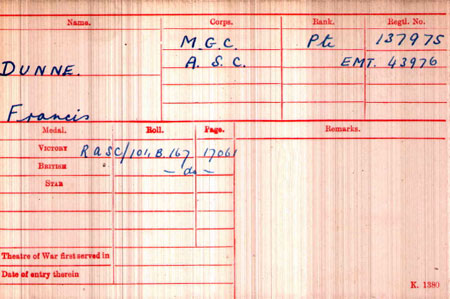 Name. Corps. Rank. Regtl. No.
M.G.C. Pte 137975
DUNNE. A. S. C. EMT. 43976
Francis
Medal. Roll. Page. Remarks.
VICTORY RASC/101.B.167 17061
BRITISH " — do —
STAR
Theatre of War first served in
Date of entry therein
K. 1380